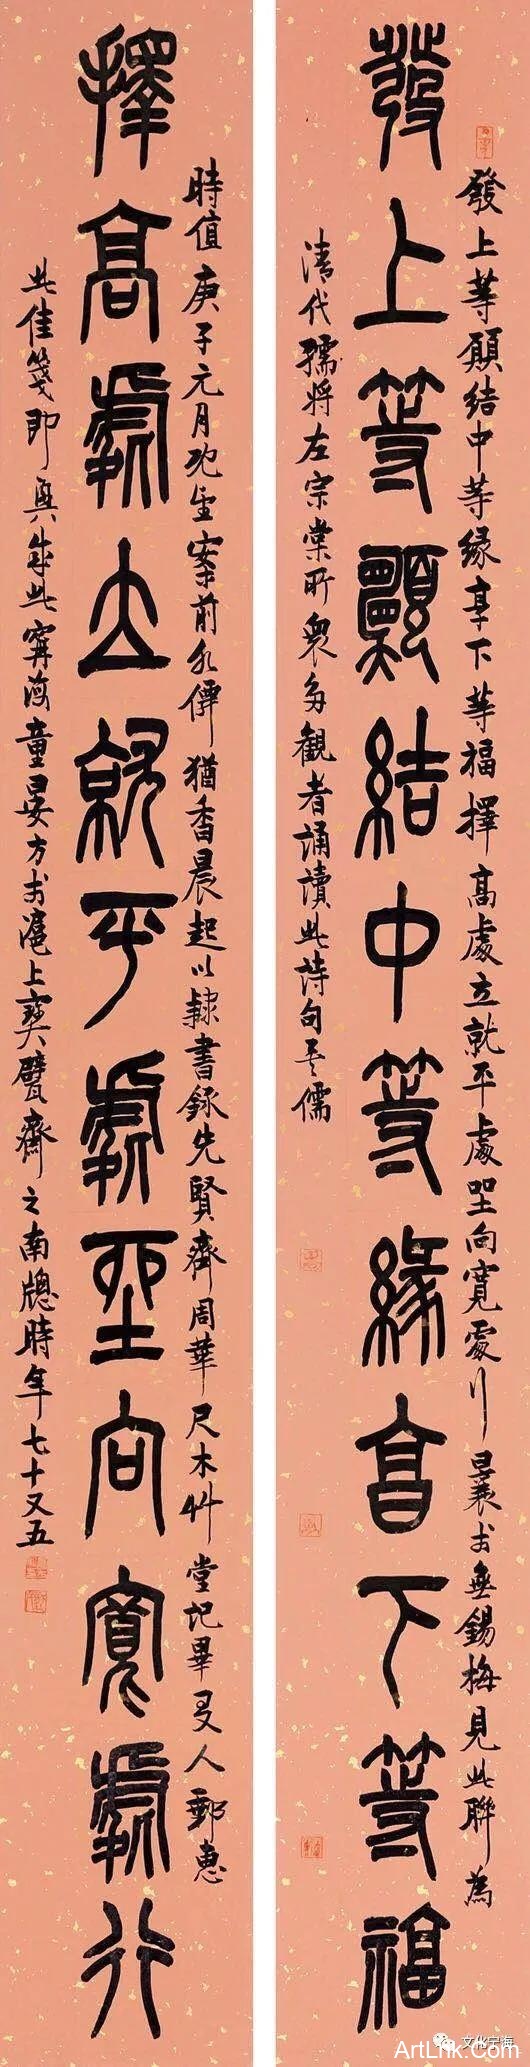 發上等願結中等緣享下等福擇高處立就平處坐向寬處行曩於無錫梅見此聯為
發上等願結中等緣享下等福
清代孺將左宗棠所眾多觀者誦讀此詩句吾儒
時值庚子元月案前水僊猶香晨起以隸書錄先賢齋周華尺木艸堂記畢友人郵惠
擇高處立就平處坐向寬處行
此佳箋即興成此甯海童晏方於滬上寶甓齋之南牕時年七十又五
文化宁海
ArtLnk.Com